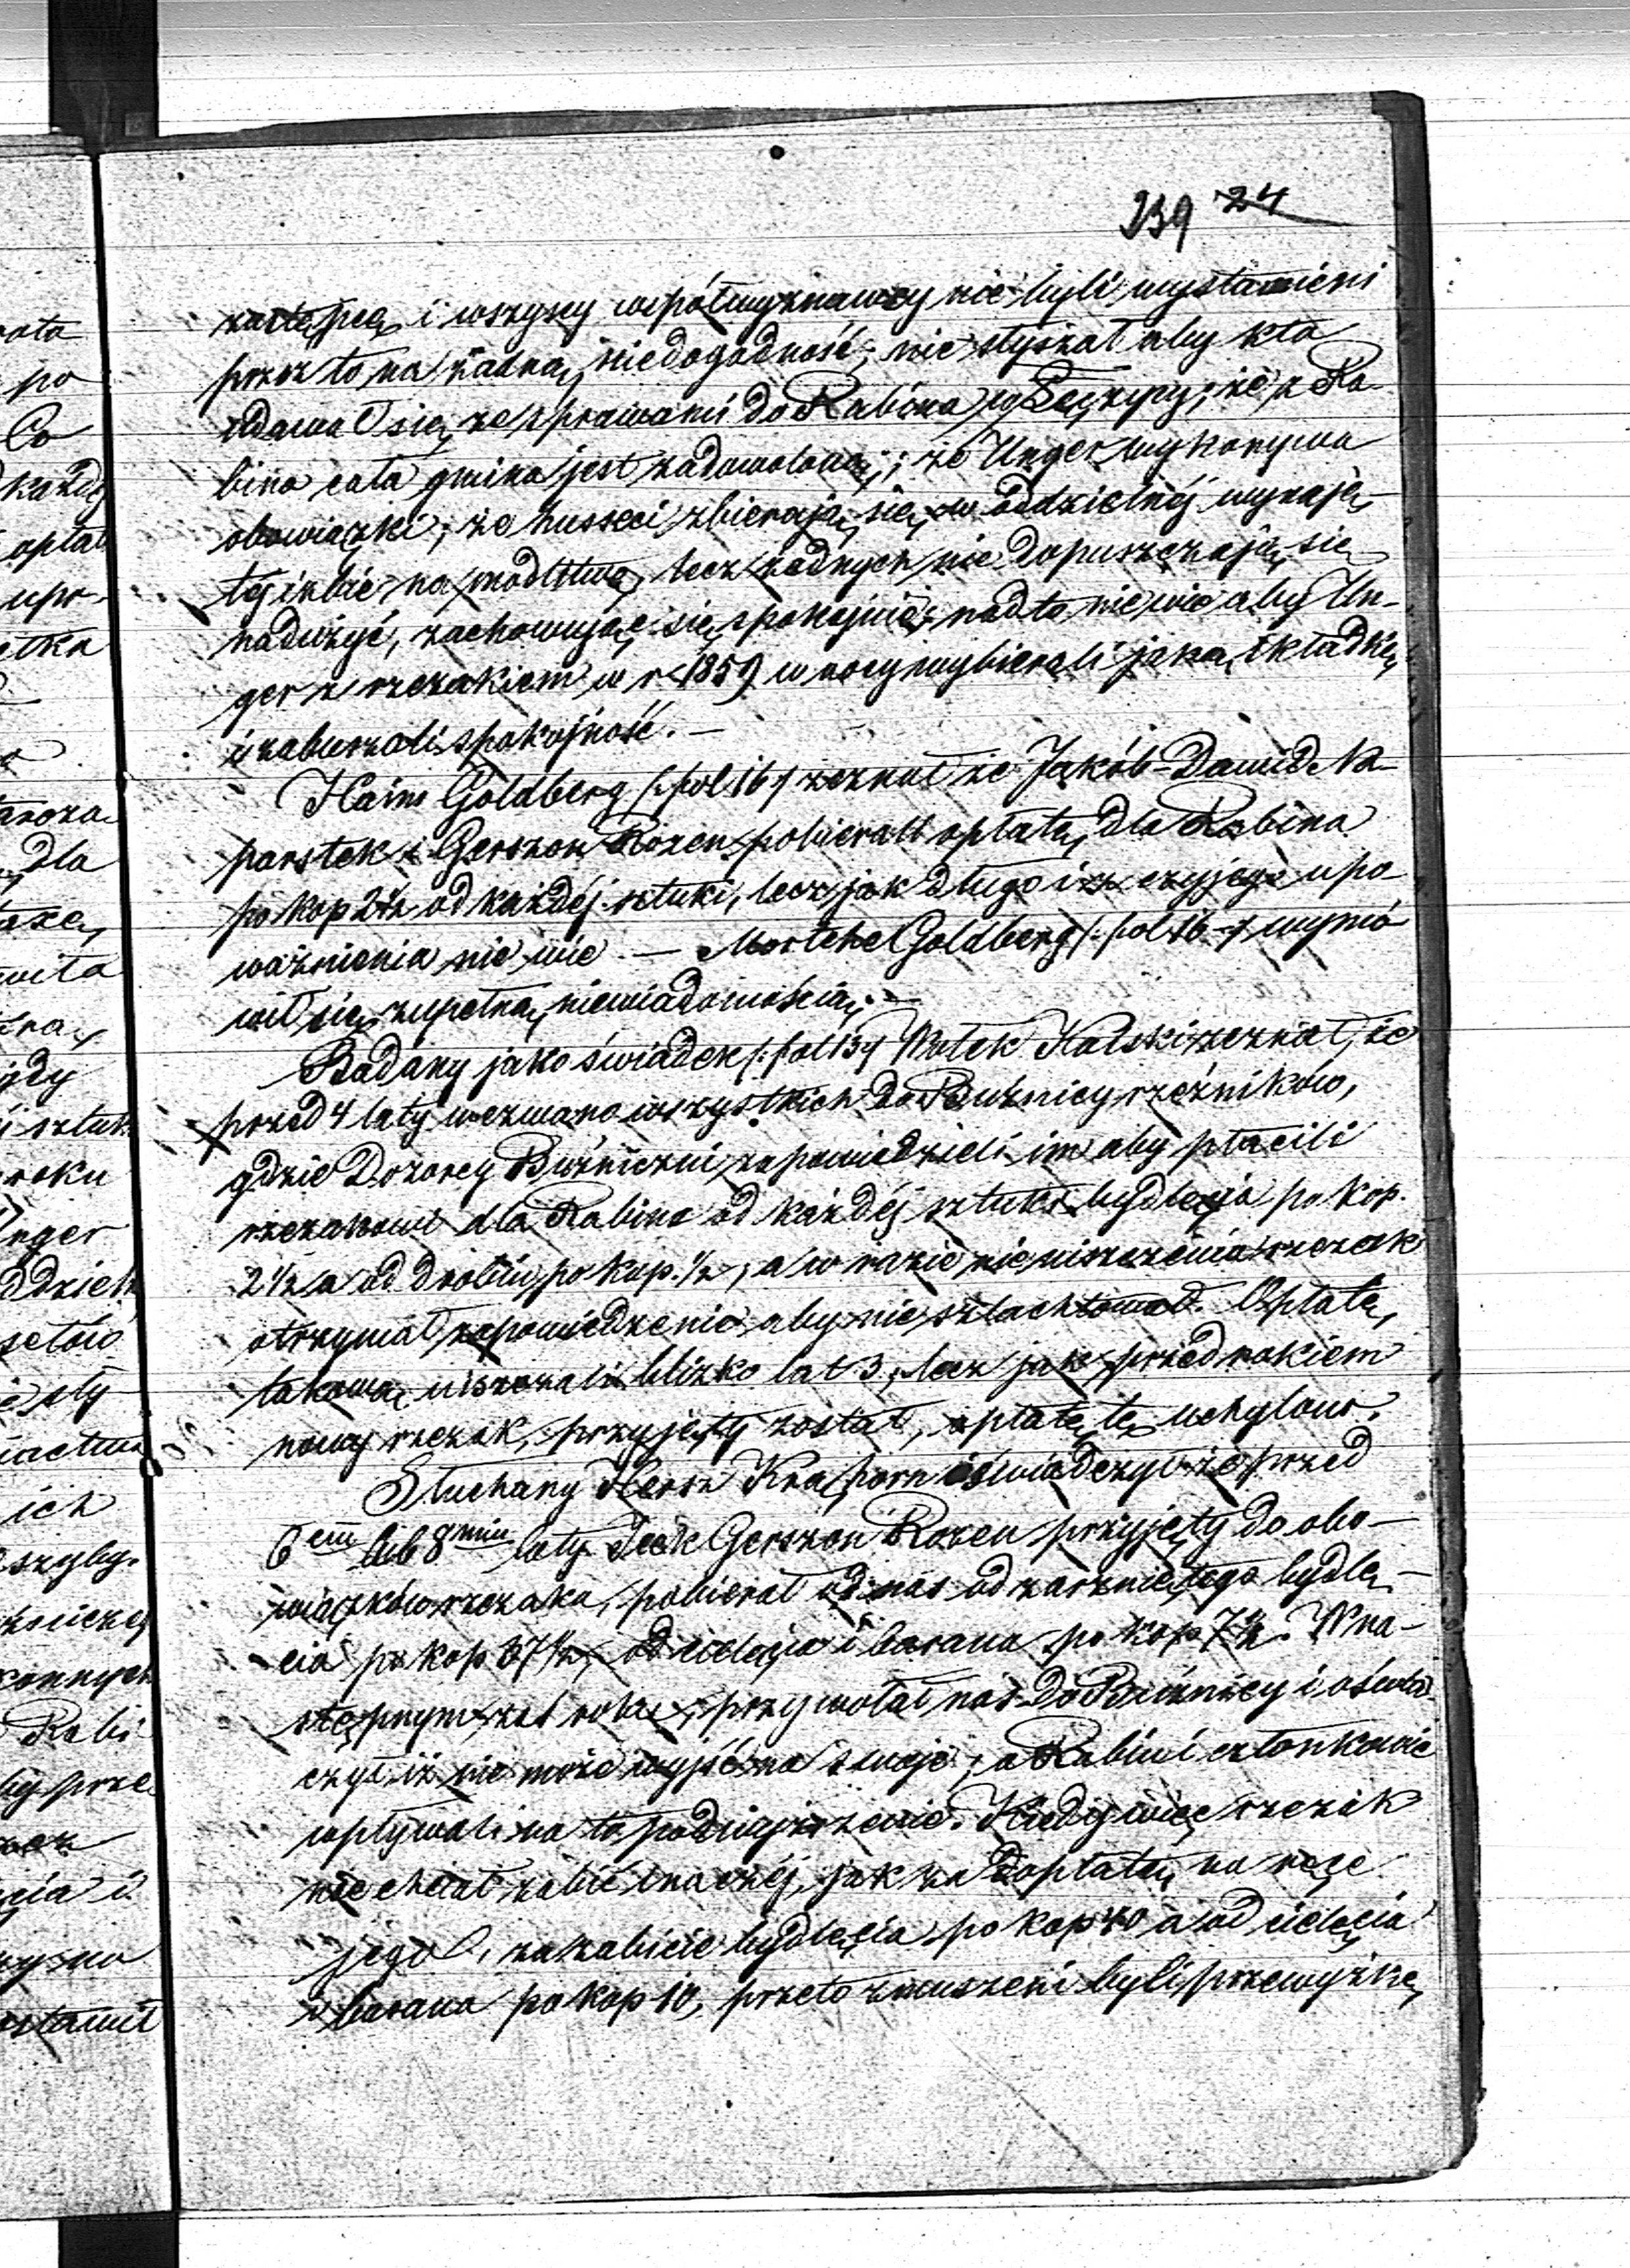 239 24
zastępcą i wszyscy współwyznawcy nie byli wystawieni
przez to na żadną niedogodność; nie słyszał aby kto
udawał się ze sprawami do Rabina z Łęczycy; że z Ra-
bina cała gmina jest zadowoloną; że Unger wykonywa
obowiązki; że hussyci zbierają się w oddzielnéj wynaję-
téj izbie na modlitwę, lecz żadnych nie dopuszczają się
nadużyć, zachowując się spokojnie, nadto nie wie aby Un-
ger z rzezakiem w r 1859 w nocy wybierali jaką składkę
i zaburzali spokojność. —
Haim Goldberg /: fol 16 :/ zeznał że Jakób-Dawid Na-
parstek i Gerszon Rozen pobierali opłatę dla Rabina
po kop 2½ od każdéj sztuki, lecz jak długo i z czyjego upo-
ważnienia nie wie. — Mortche Goldberg /: fol 16 :/ wymó-
wił się zupełną niewiadomością. —
Badany jako świadek /: fol 13 :/ Wolek Kolski zeznał, że
przed 4 laty wezwano wszystkich do Bużnicy rzeźników,
gdzie Dozorcy Bużniczni zapowiedzieli im aby płacili
rzezakowi dla Rabina od każdéj sztuki bydlęcia po kop.
2½ a od drobiu po kop. ½, a w razie nieuiszczenia rzezak
otrzymał zapowiedzenie aby nie szlachtował. Opłatę
takową uiszczali blizko lat 3, lecz jak przed rokiem
nowy rzezak przyjęty został, opłatę tę uchylono.
Słuchany Hersz Krakporn oświadczył że przed
6ciu lub 8miu laty Icek Gerszon Rozen przyjęty do obo-
wiązków rzezaka, pobierał od nas od zarzniętego bydlę-
cia po kop 37½, od cielęcia i barana po kop 7½. W na-
stępnym zaś roku, przywołał nas do Bużnicy i oświad-
czył iż nie może wyjść na swoje, a Rabin i członkowie
wpływali na to podwyższenie. Kiedy więc rzezak
nie chciał zabić inaczéj, jak za dopłatą na ręce
jego, za zabicie bydlęcia po kop 40 a od cielęcia
i barana po kop 10, przeto zmuszeni byli przewyżkę